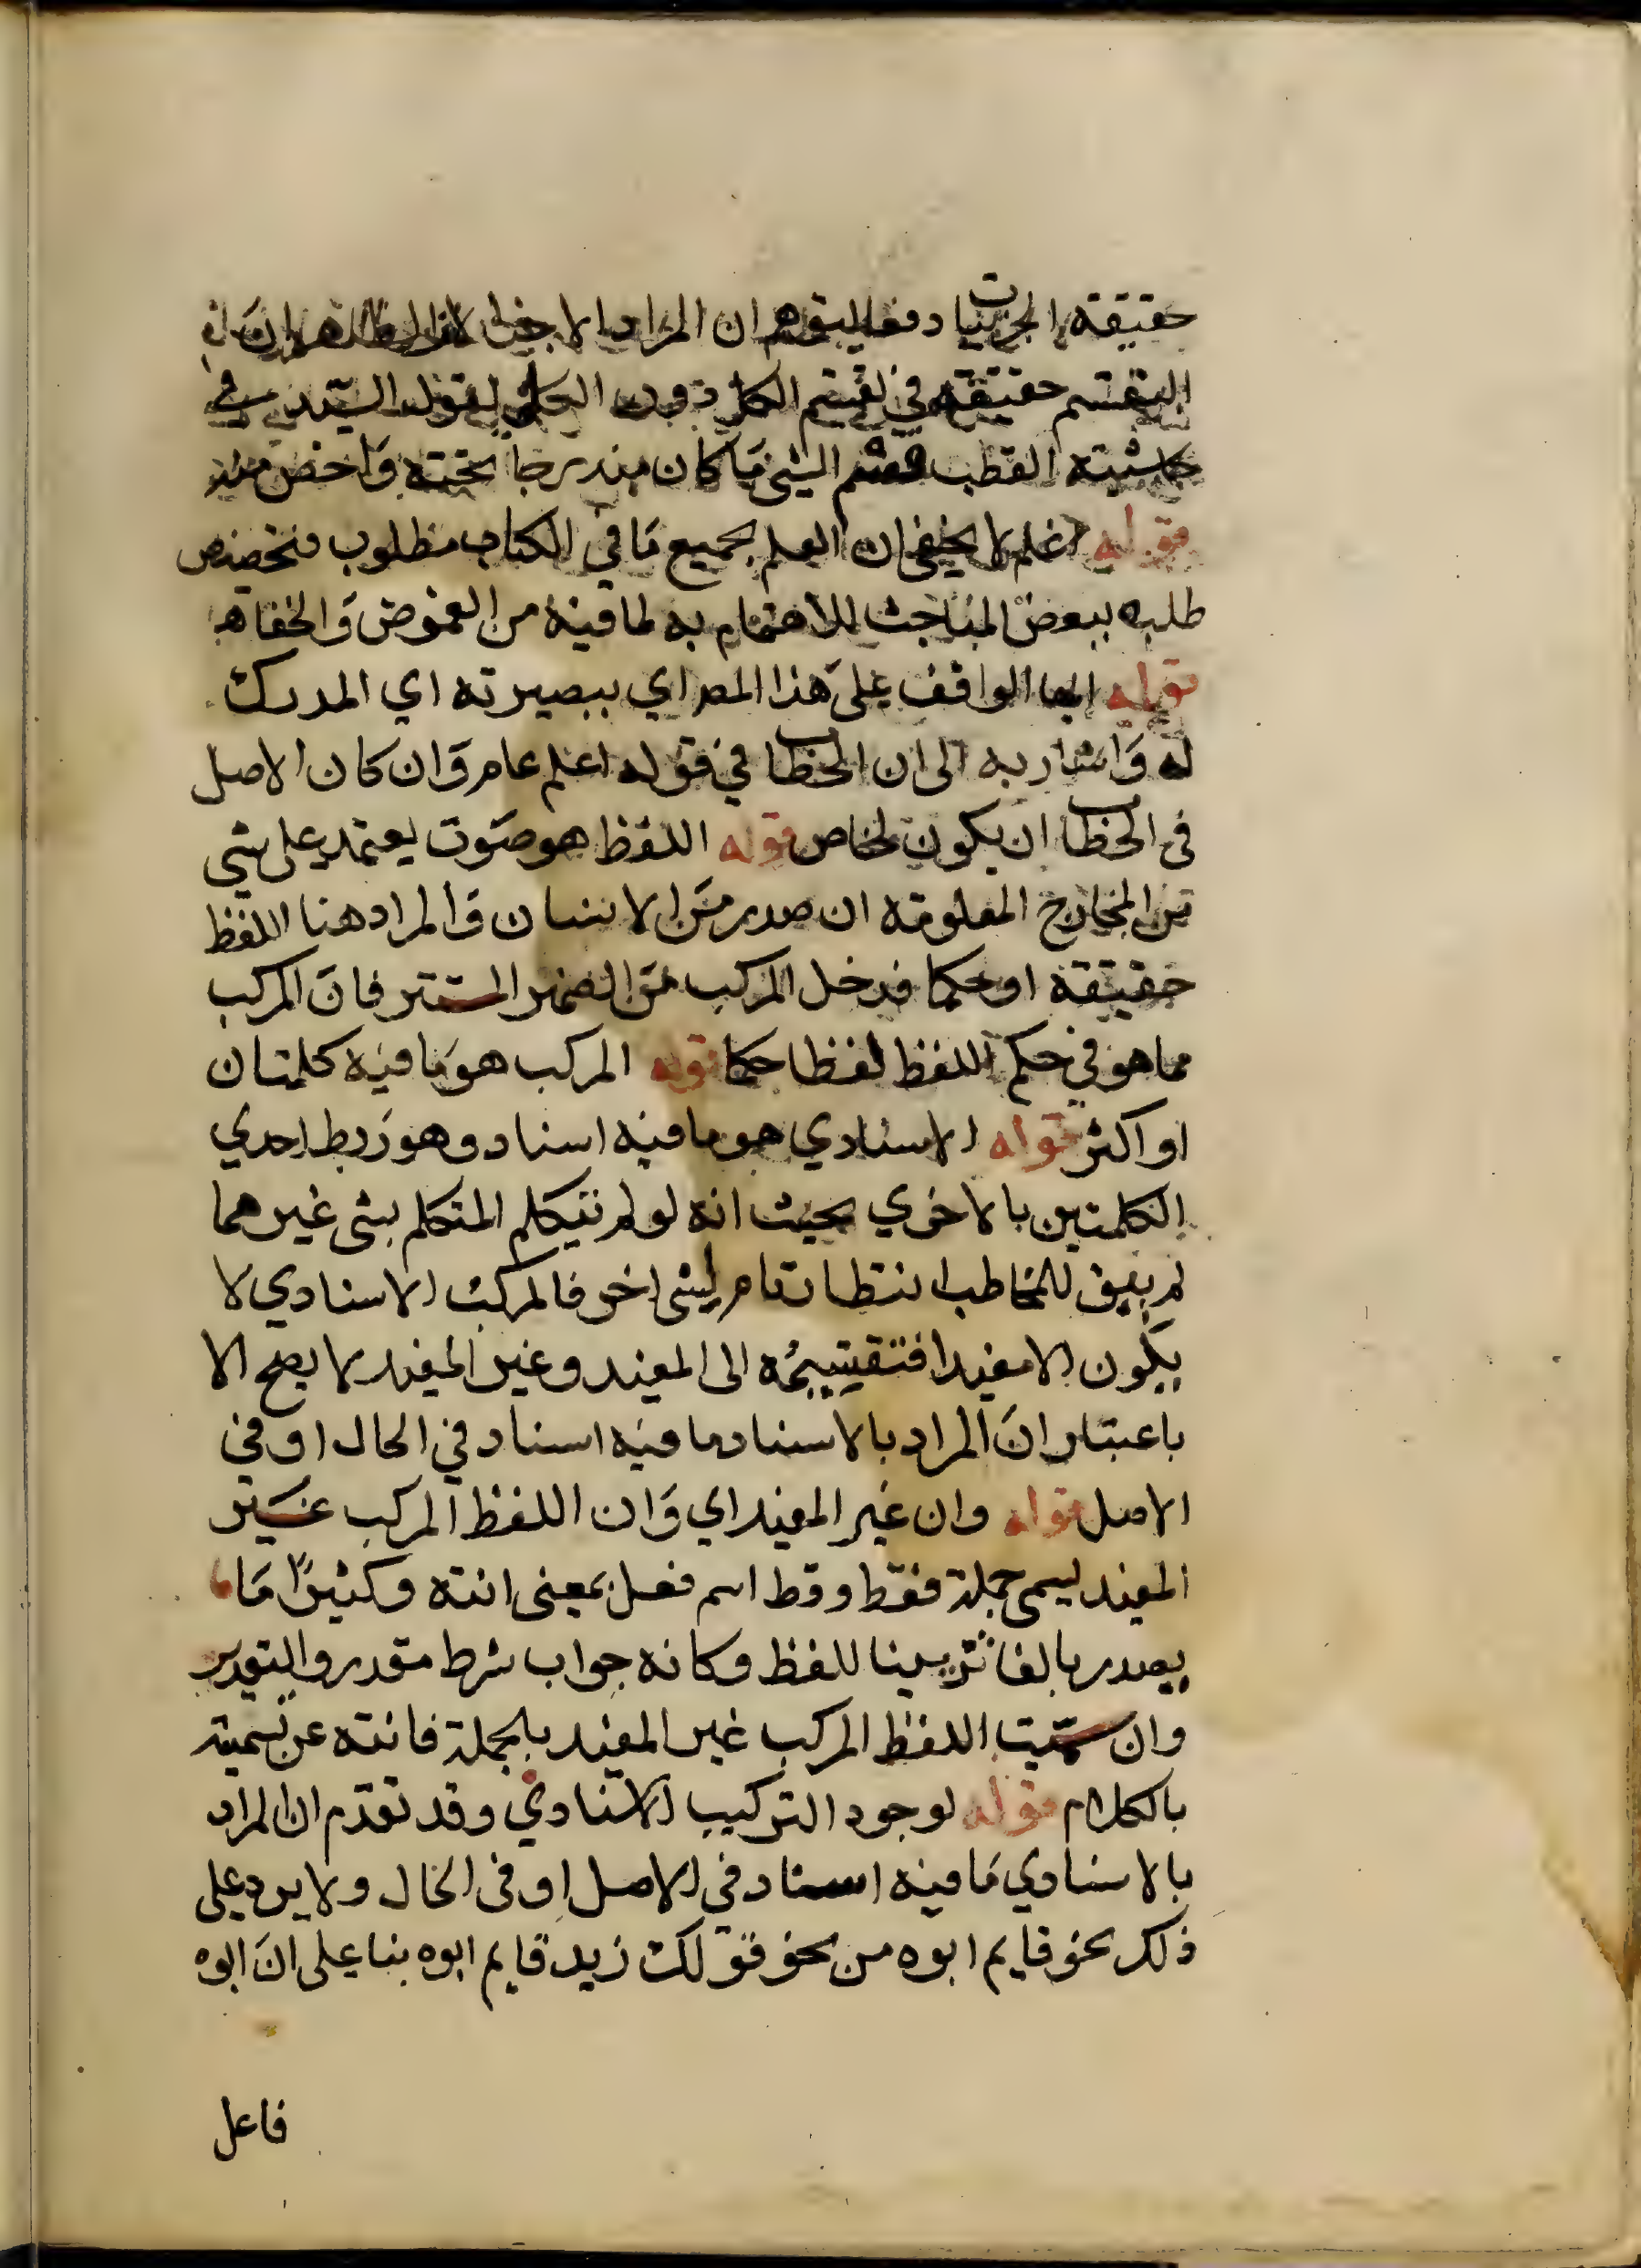 حقيقة الجزئيات دفعا لتوهم ان المراد الاجزا لان الظاهر ان
التقسم حقيقة في تقسيم الكل دون الكلي لقول السيد في
حاشيته القطب قسم الشي ما كان مندرجا تحته واخص منه
قوله اعلم لا يخفى ان العلم بجميع ما في الكتاب مطلوب فتخصيص
طلبه ببعض المباحث للاهتمام به لما فيه من الغموض والخفاء
قوله ايها الواقف على هذا المص اي ببصيرته اي المدرك
له واشار به الى ان الخطاب في قوله اعلم عام وان كان الاصل
في الخطاب ان يكون لخاص قوله اللفظ هو صوت يعتمد على شي
من المخارج المعلومة ان صدر من الانسان والمراد هنا اللفظ
حقيقة او حكما فدخل المركب من الضمير المستتر فان المركب
مما هو في حكم اللفظ لفظا حكما قوله المركب هو ما فيه كلمتان
او اكثر قوله الاسنادي هو ما فيه اسناد وهو ربط احدي
الكلمتين بالاخري بحيث انه لو لم يتكلم المتكلم بشي غيرهما
لم يبق للمخاطب انتظار تام لشي اخر فالمركب الاسنادي لا
يكون الا مفيدا فتقسيمه الى المفيد وغير المفيد لا يصح الا
باعتبار ان المراد بالاسناد ما فيه اسناد في الحال او في
الاصل قوله وان غير المفيد اي وان اللفظ المركب غير
المفيد ليسمى جملة فقط وقط اسم فعل بمعنى انته وكثيرا ما
يصدر بالفا تزيينا للفظ وكانه جواب شرط مقدر والتقدير
وان سميت اللفظ المركب غير المفيد بالجملة فانته عن تسميته
بالكلام قوله لوجود التركيب الاسنادي وقد تقدم ان المراد
بالاسنادي ما فيه اسناد في الاصل او في الحال ولا يرد على
ذلك نحو قايم ابوه من نحو قولك زيد قايم ابوه بنا على ان ابوه
فاعل